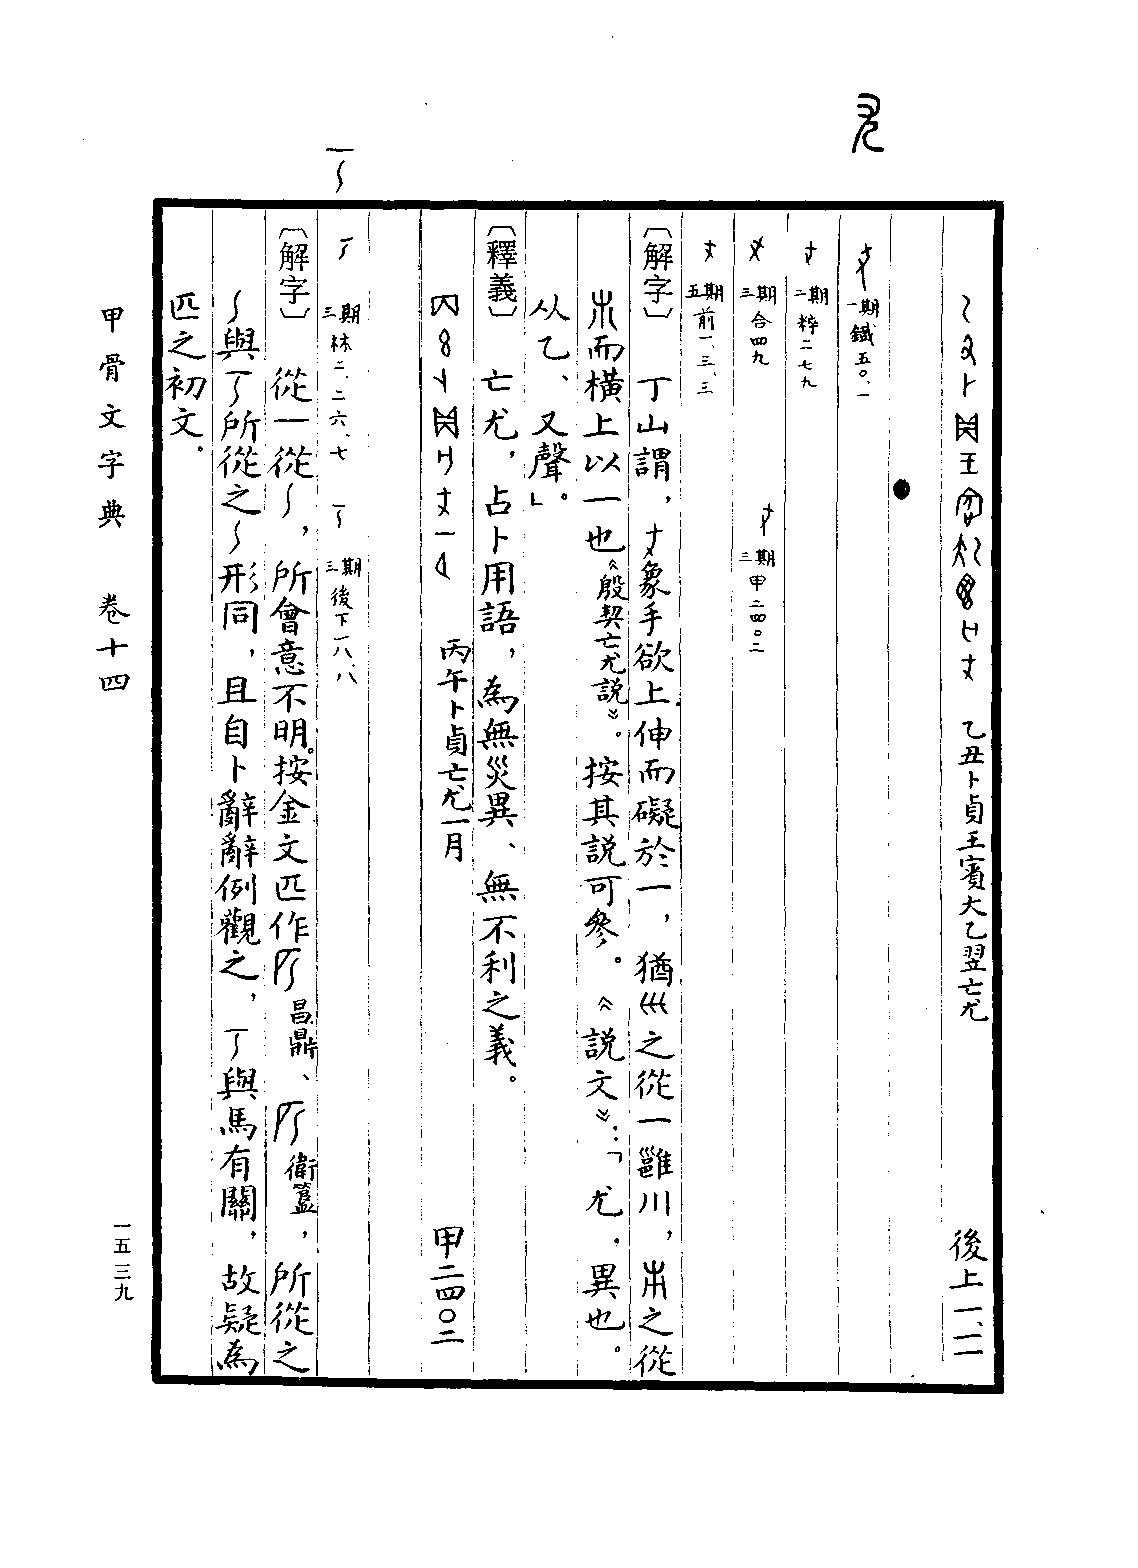 尤
乙丑卜貞王賓大乙翌亡尤 後上一、一一
一期 鐵五〇、一
二期 粹二七九
三期 合四九 三期 甲二四〇二
五期 前一、三、三
〔解字〕 丁山謂，象手欲上伸而礙於一，猶巛之從一雝川，𣎵之從
𣎵而橫上以一也《殷契亡尤說》。按其說可參。《說文》：「尤，異也。
从乙、又聲」。
〔釋義〕 亡尤，占卜用語，為無災異、無不利之義。
丙午卜貞亡尤一月 甲二四〇二
三期 林二、二六、七 三期 後下一八、八
〔解字〕 從一從，所會意不明。按金文匹作 昌鼎、 衛簋，所從之
與所從之形同，且自卜辭辭例觀之，與馬有關，故疑為
匹之初文。
甲骨文字典 卷十四
一五三九